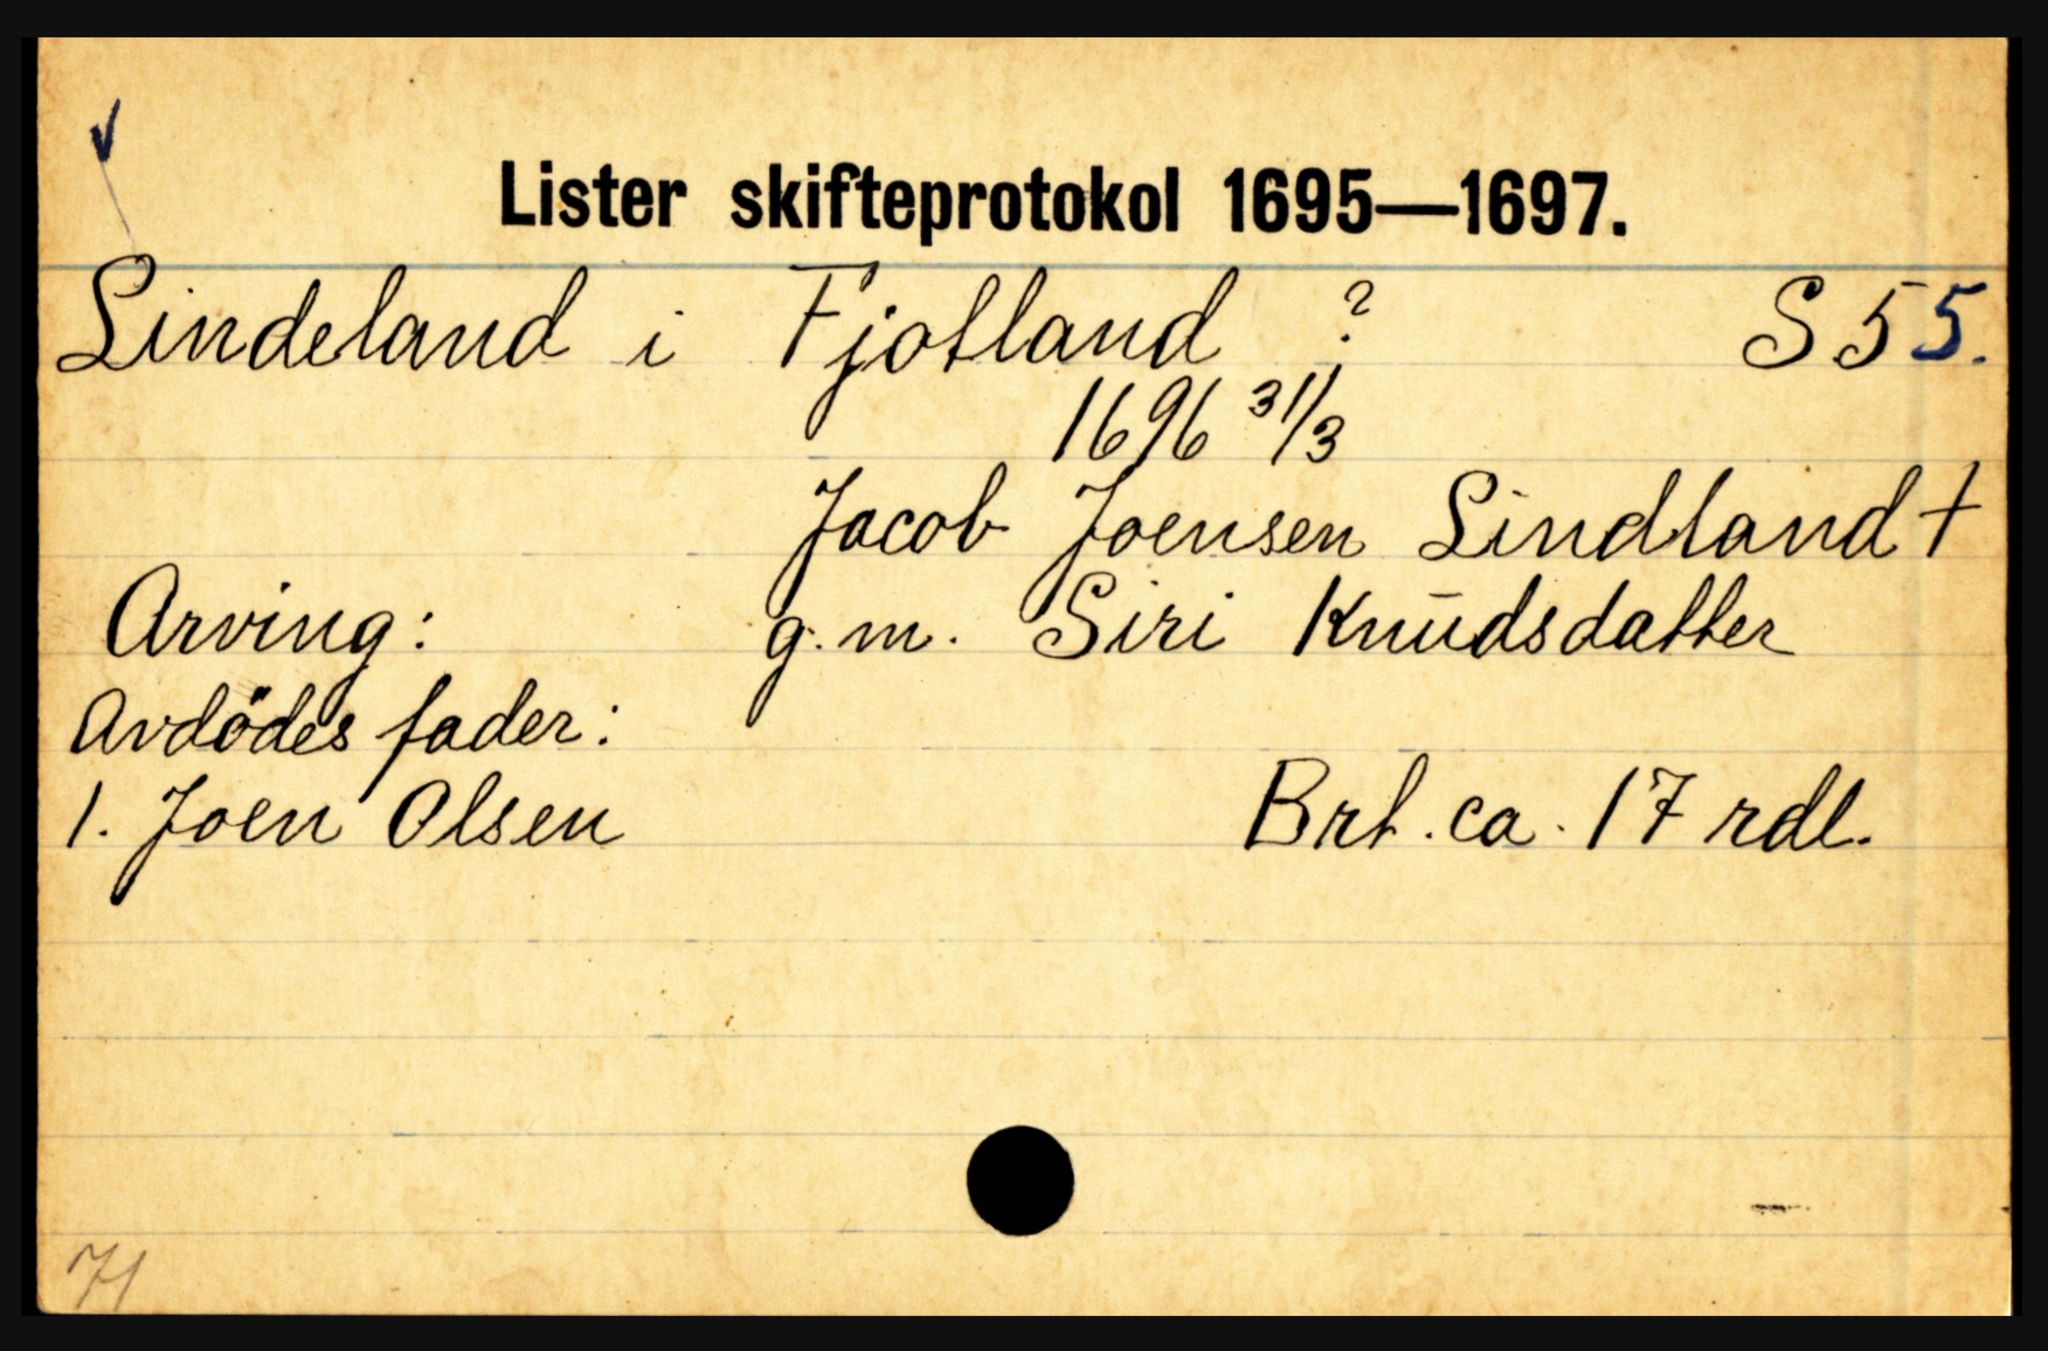 Lister skifteprotokol 1695—1697.
Lindeland i Fjotland ? S 55.
1696 31/3
Jacob Joensen Lindland +
Arving: g. m. Siri Knudsdatter
Avdödes fader:
1. Joen Olsen Brt. ca. 17 rdl.
71